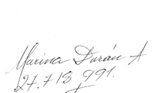 Marina Durán A
24.713.991.